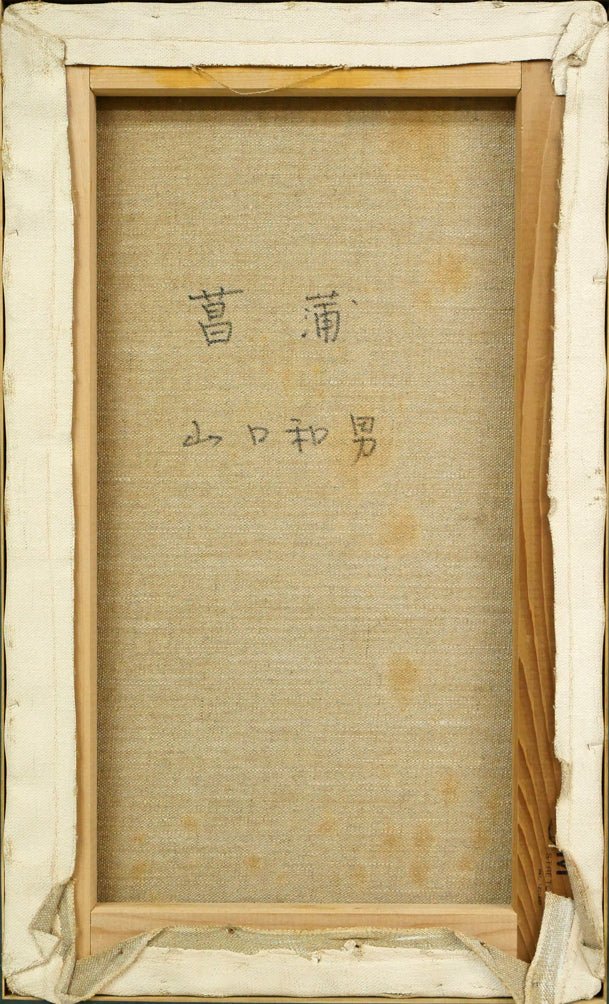 菖 蒲
山口和男